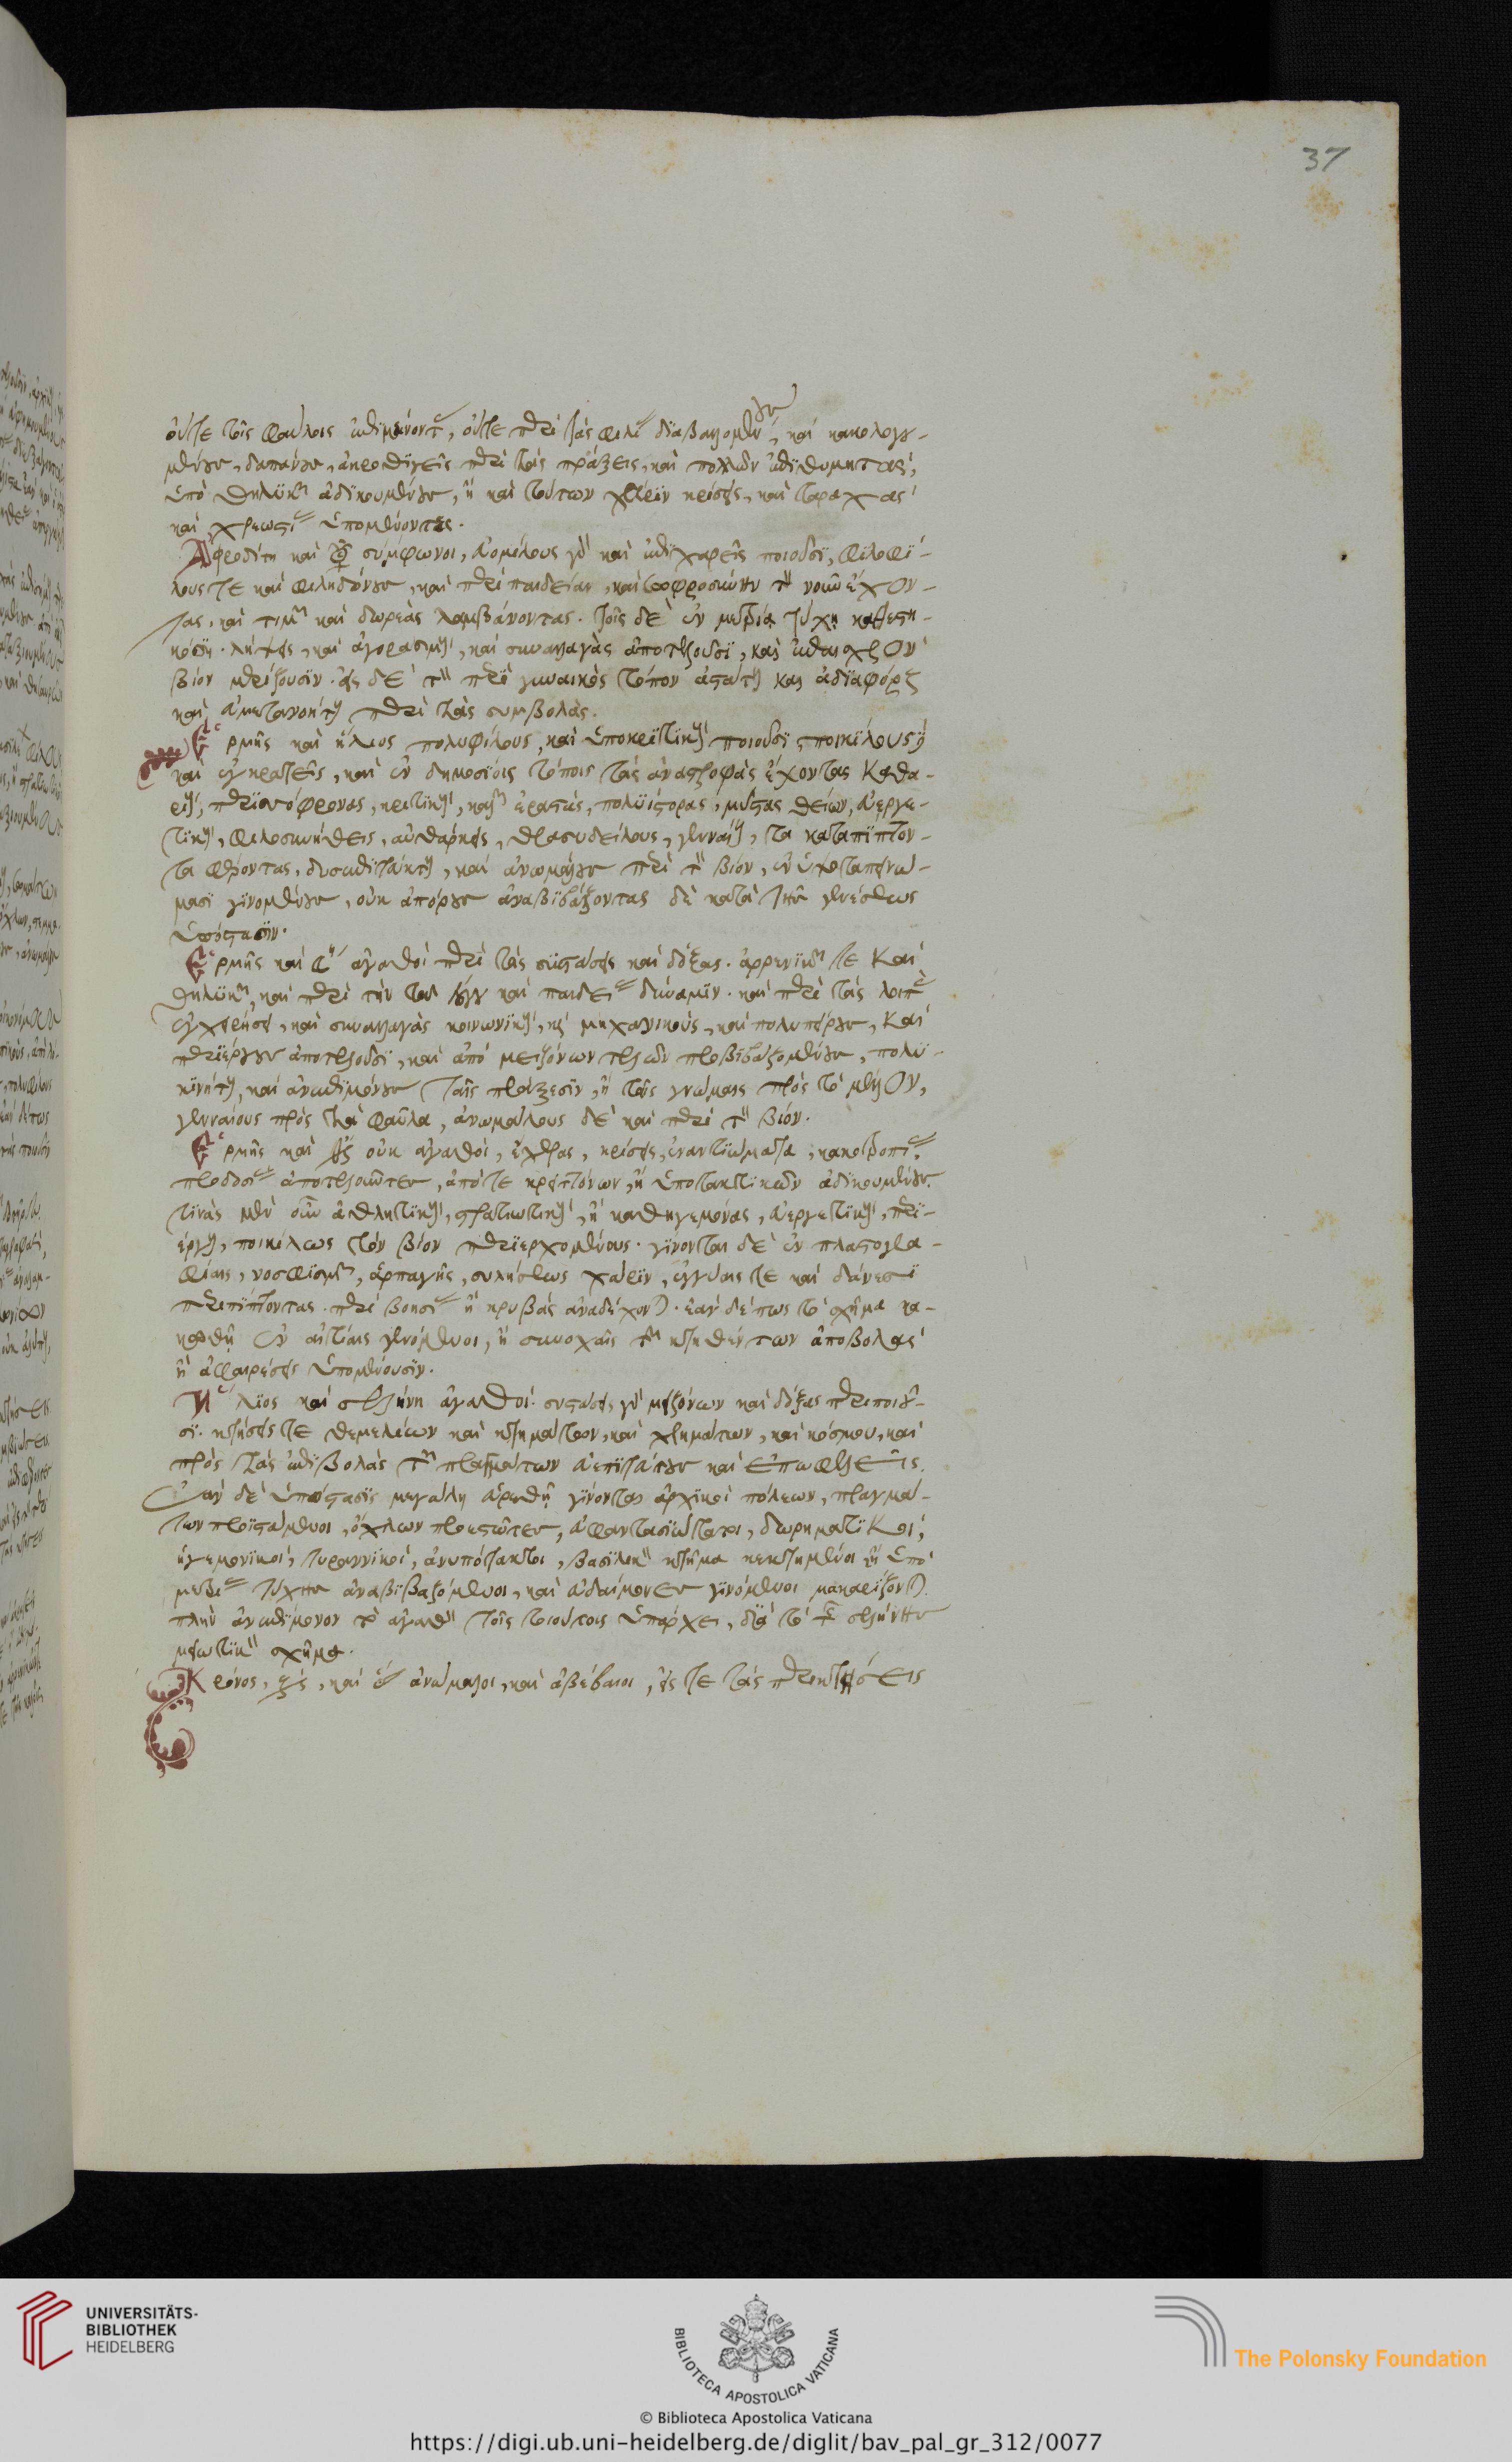 37
οὔτε τοῖς φαύλοις ἐπιμένοντας, οὔτε περὶ τὰς φιλίας διαβαλλομένους, καὶ κακολογου-
μένους, δαπάνους, ἀκροθιγεῖς περὶ τὰς πράξεις, καὶ πολλῶν ἐπιθυμητάς,
ὑπὸ θηλυκῶν ἀδικουμένους, ἢ καὶ τούτων χάριν κρίσεις, καὶ ταραχὰς
καὶ χρεωστίας ὑπομένοντες.
Ἀφροδίτη καὶ σύμφωνοι, εὐομίλους γὰρ καὶ ἐπιχαρεῖς ποιοῦσι, φιλοφί-
λους τε καὶ φιληδόνους, καὶ περὶ παιδείαν, καὶ σωφροσύνην τὸν νοῦν ἔχον-
τας, καὶ τιμῶν καὶ δωρεὰς λαμβάνοντας. τοῖς δὲ ἐν μετρίᾳ τύχῃ καθεστη-
κόσιν. λήψεις, καὶ ἀγορασμοὺς, καὶ συναλλαγὰς ἀποτελοῦσι, καὶ
βίον μερίζουσιν. εἰς δὲ τὸν περὶ γυναικὸς τόπον ἀστάτους καὶ ἀδιαφόρους
καὶ ἀμετανοήτους περὶ τὰς συμβολάς.
Ἑρμῆς καὶ ἥλιος πολυφίλους, καὶ ὑποκριτικοὺς ποιοῦσι, ποικίλους
καὶ ἐγκρατεῖς, καὶ ἐν δημοσίοις τόποις τὰς ἀναστροφὰς ἔχοντας καθα-
ροὺς, περισσόφρονας, κριτικοὺς, καλῶν ἐραστὰς, πολυίστορας, μύστας θείων, εὐεργε-
τικοὺς, φιλοσυνήθεις, αὐθαρκεῖς, θρασυδείλους, γενναίους, τὰ καταπίπτον-
τα φέροντας, δυσεπιτάκτους, καὶ ἀνωμάλους περὶ τὸν βίον, ἐν ὑψοταπεινώ-
μασι γινομένους, οὐκ ἀπόρους ἀναβιβάζοντας δὲ κατὰ τὴν γενέσεως
ὑπόστασιν.
Ἑρμῆς καὶ ἀγαθοὶ περὶ τὰς συστάσεις καὶ δόξας. ἀρρενικῶν τε καὶ
θηλυκῶν, καὶ περὶ τὴν τοῦ λόγου καὶ παιδείας δύναμιν. καὶ περὶ τὰς λοιπὰς
ἐγχειρήσεις, καὶ συναλλαγὰς κοινωνικοὺς, καὶ μηχανικοὺς, καὶ πολυπείρους, καὶ
περιέργους ἀποτελοῦσι, καὶ ἀπὸ μειζόνων τελῶν προβιβαζομένους, πολυ-
κινήτους, καὶ ἀνεπιμόνους ταῖς πράξεσιν, ἢ ταῖς γνώμαις πρὸς τὸ μέλλον,
γενναίους πρὸς τὰ φαῦλα, ἀνωμάλους δὲ καὶ περὶ τὸν βίον.
Ἑρμῆς καὶ οὐκ ἀγαθοὶ, ἔχθρας, κρίσεις, ἐναντιώματα, κακοτροπίας,
προδοσίας ἀποτελοῦντες, ἀπό τε κρειττόνων, ἢ ὑποτακτικῶν ἀδικουμένους
τινὰς μὲν οὖν ἀθλητικοὺς, στρατιωτικοὺς, ἢ καθηγεμόνας, εὐεργετικοὺς, περι-
έργους, ποικίλως τὸν βίον περιερχομένους. γίνονται δὲ ἐν πλαστογρα-
φίαις, νοσφισμῶν, ἁρπαγῆς, συλήσεως χάριν, ἐγγύαις τε καὶ δάνεσι
περιπίπτοντας. περὶ βοησίας ἢ κρυβὰς ἀναδέχονται. ἐὰν δέ πως τὸ σχῆμα κα-
κωθῇ ἐν αἰτίαις γενόμενοι, ἢ συνοχαῖς τῶν κτηθέντων ἀποβολὰς
ἢ ἀφαιρέσεις ὑπομένουσιν.
Ἥλιος καὶ σελήνη ἀγαθοὶ. συστάσεις γὰρ μειζόνων καὶ δόξας περιποιοῦ-
σι. κτήσεις τε θεμελίων καὶ κτημάτων, καὶ χρημάτων, καὶ κόσμου, καὶ
πρὸς τὰς ἐπιβολὰς τῶν πραγμάτων εὐεπιτάτους καὶ ἐπωφελεῖς.
ἐὰν δὲ ὑπόστασις μεγάλη εὑρεθῇ γίνονται ἀρχικοὶ πόλεων, πραγμά-
των προϊστάμενοι, ὄχλων προεστῶτες, εὐφαντασιώτατοι, δωρηματικοὶ,
ἡγεμονικοὶ, τυραννικοὶ, ἀνυπότακτοι, βασιλικὸν κτῆμα κεκτημένοι ἢ ὑπὸ
μετρίας τύχης ἀναβιβαζόμενοι, καὶ εὐδαίμονες γινόμενοι μακαρίζονται.
πλὴν ἀνεπίμονον τὸ ἀγαθὸν τοῖς τοιούτοις ὑπάρχει, διὰ τὸ τῆς σελήνης
μειωτικὸν σχῆμα.
Κρόνος, ζεὺς, καὶ ἀνώμαλοι, καὶ ἀβέβαιοι, εἴς τε τὰς περικτήσεις
UNIVERSITÄTS-
BIBLIOTHEK
HEIDELBERG
BIBLIOTECA APOSTOLICA VATICANA
The Polonsky Foundation
© Biblioteca Apostolica Vaticana
https://digi.ub.uni-heidelberg.de/diglit/bav_pal_gr_312/0077